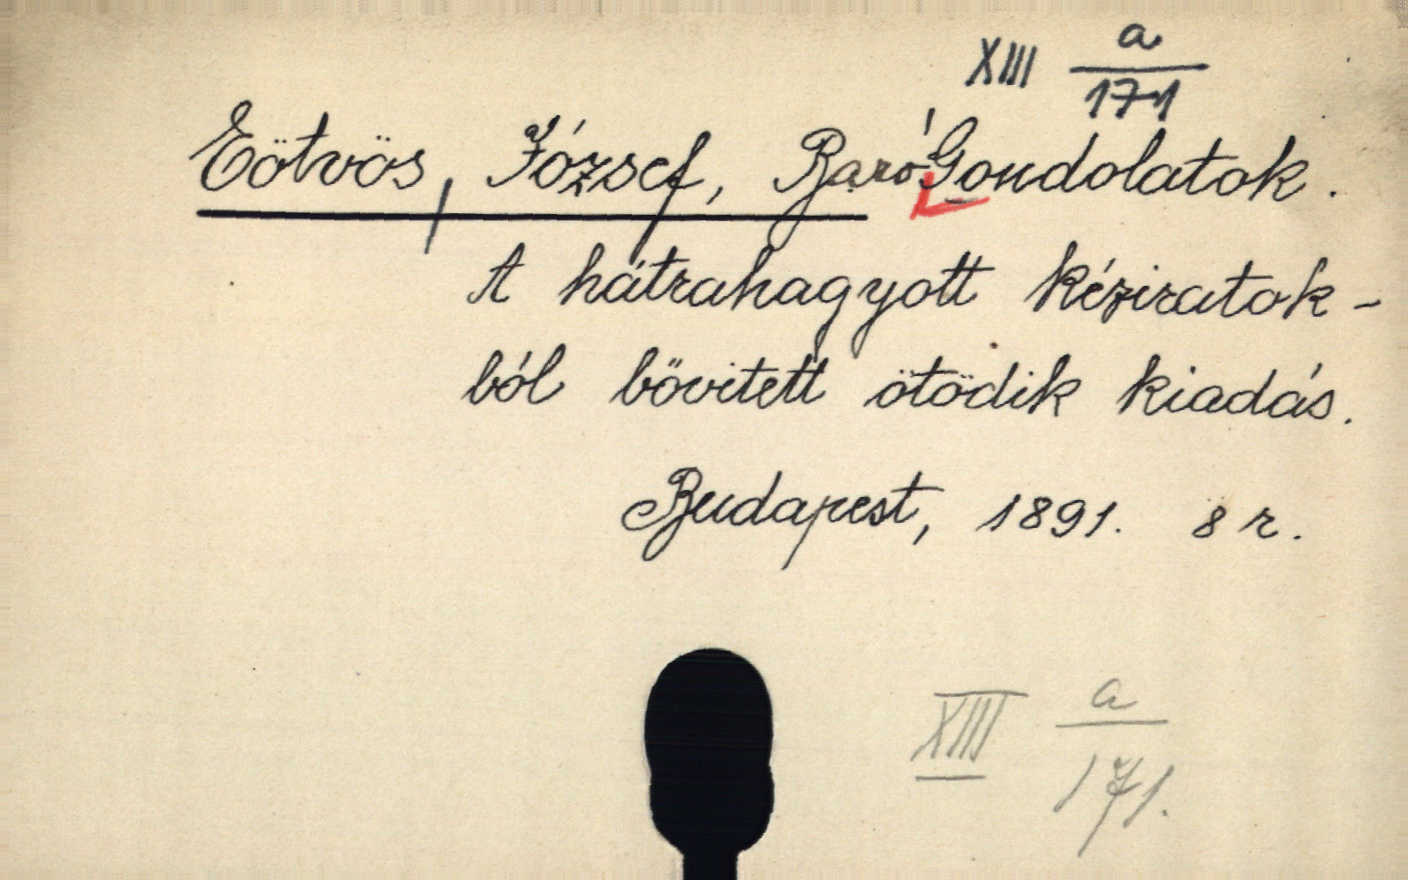 XIII a/171
Eötvös, József, Baró Gondolatok.
A hátrahagyott kéziratok-
ból bővitett ötödik kiadás.
Budapest, 1891. 8 r.
XIII a/171.